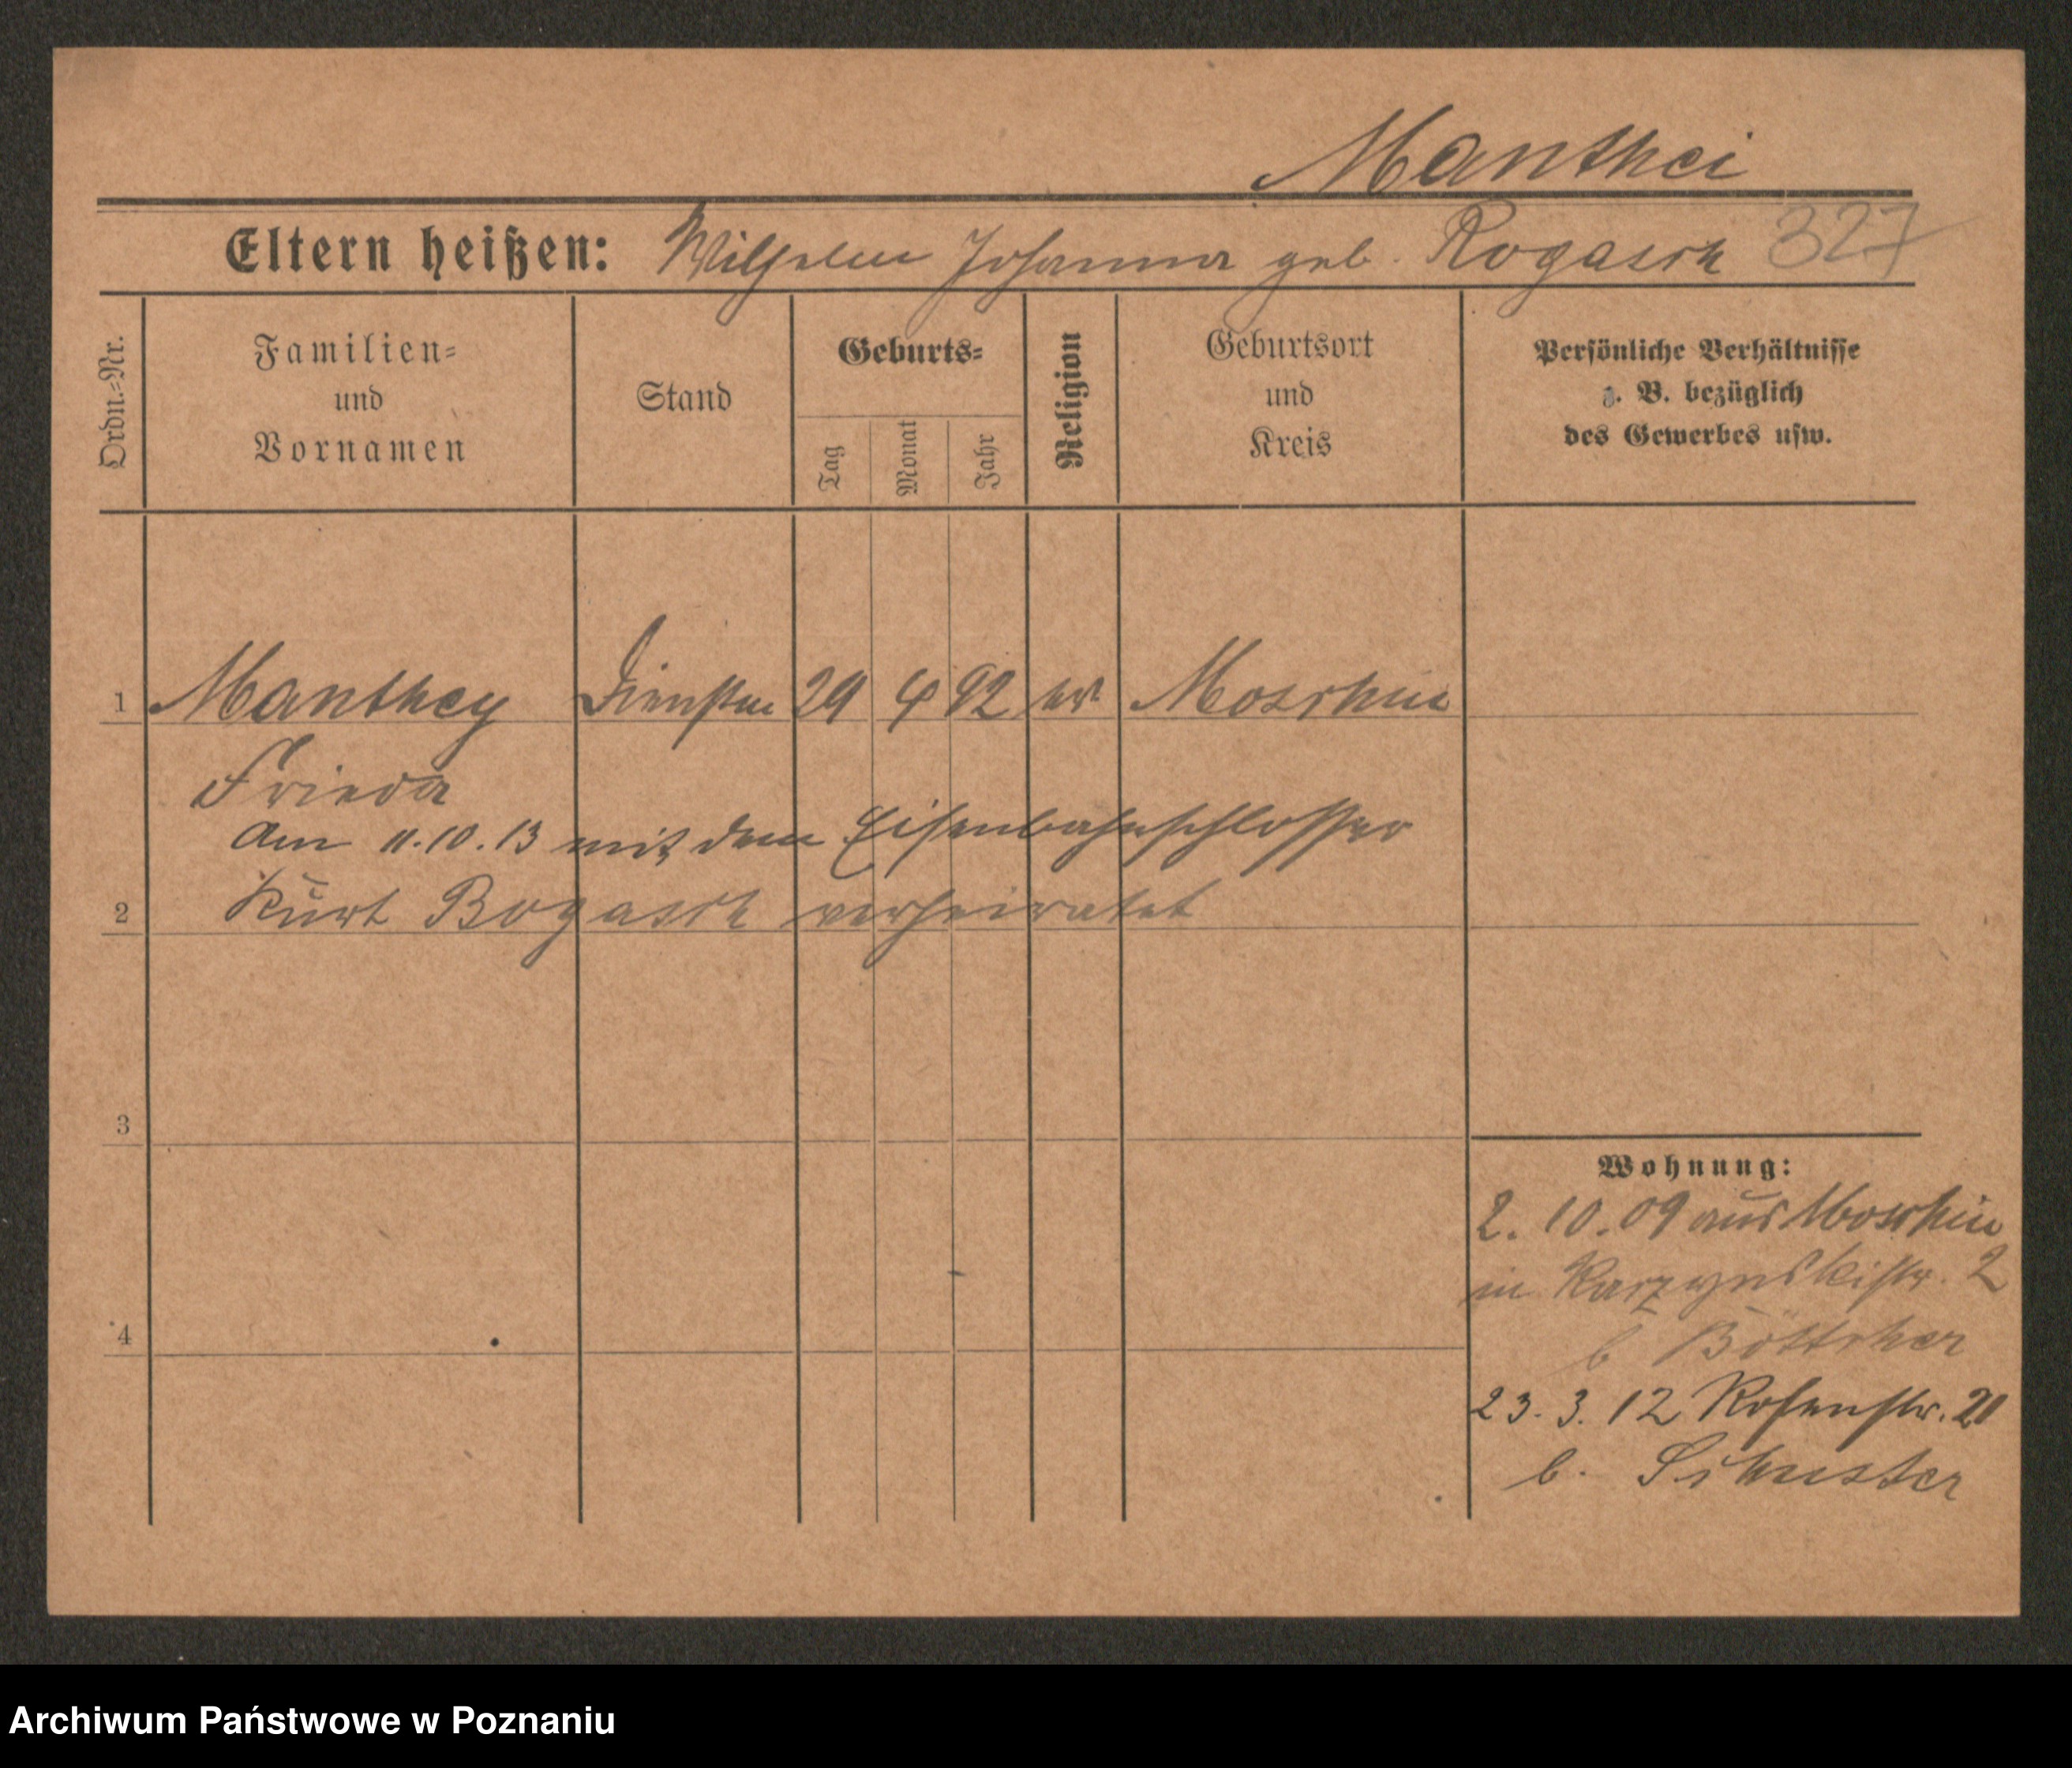 Manthei
Eltern heißen: Wilhelm Johanna geb. Rogasch 327
Ordn.-Nr.
Familien-
und
Vornamen
Stand
Geburts-
Tag
Monat
Jahr
Religion
Geburtsort
und
Kreis
Persönliche Verhältnisse
z. B. bezüglich
des Gewerbes usw.
1 Manthey 29 4 92 ev Moschin
Frieda
am 11.10.13 mit dem Eisenbahnschlosser
2 Kurt Bogasch verheiratet
3
Wohnung:
2. 10. 09 aus Moschin
in 2
4
b Böttcher
23. 3. 12 Rosenstr. 21
b. Schuster
Archiwum Państwowe w Poznaniu